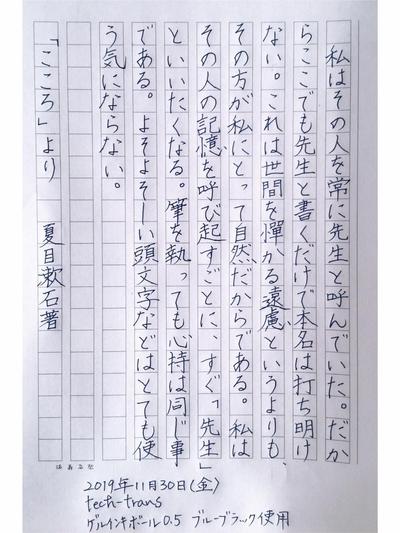 私はその人を常に先生と呼んでいた。だか
らここでも先生と書くだけで本名は打ち明け
ない。これは世間を憚かる遠慮というよりも、
その方が私にとって自然だからである。私は
その人の記憶を呼び起すごとに、すぐ「先生」
といいたくなる。筆を執っても心持は同じ事
である。よそよそしい頭文字などはとても使
う気にならない。
「こころ」より　夏目漱石著
2019年11月30日(金)
tech-trans
ゲルインキボール0.5 ブルーブラック使用